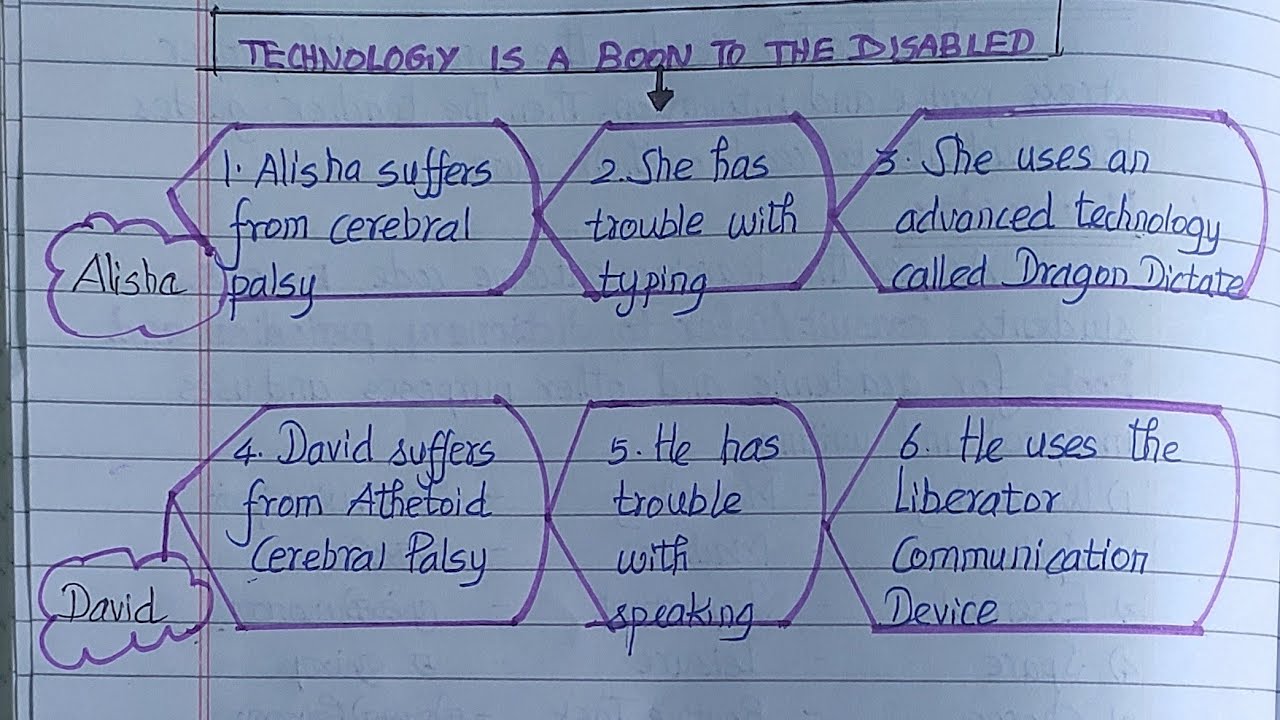 TECHNOLOGY IS A BOON TO THE DISABLED
1. Alisha suffers
from cerebral
palsy
2. She has
trouble with
typing
3. She uses an
advanced technology
called Dragon Dictate
Alisha
4. David suffers
from Athetoid
Cerebral Palsy
5. He has
trouble
with
speaking
6. He uses the
Liberator
Communication
Device
David